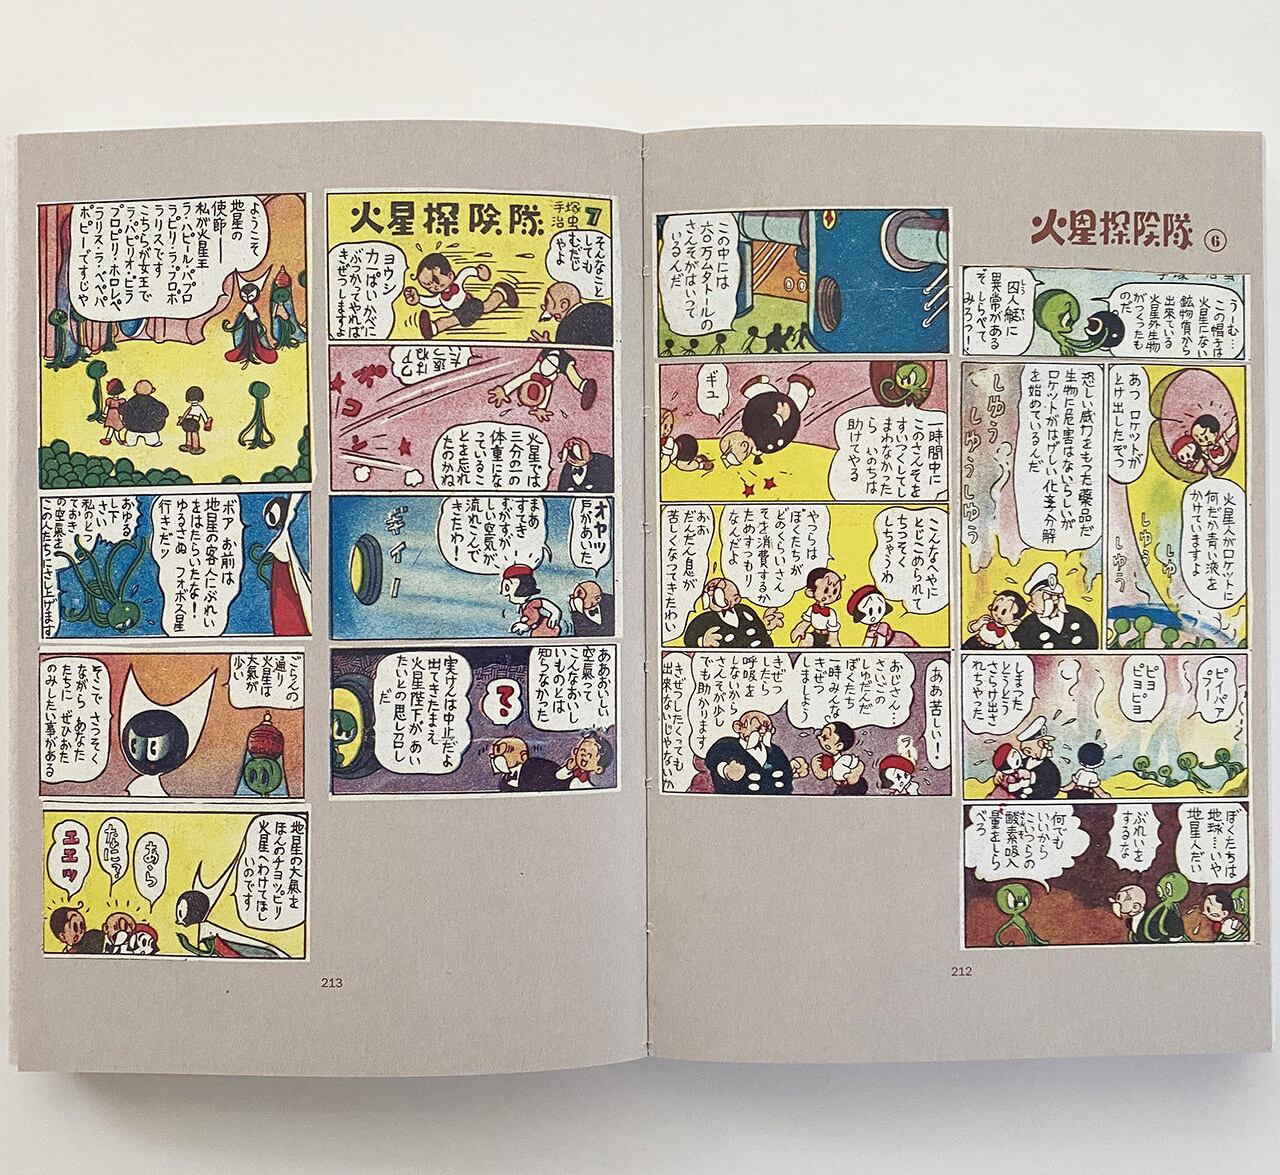 火星探険隊 ⑥
うーむ…
この帽子は
火星にない
鉱物質から
出来ている
火星外生物
がつくったも
のだ
囚人艇に
異常がある
ぞしらべて
みろっ!
火星人がロケットに
何だか青い液を
かけていますよ
しゅう
しゅ
しゅう
あつ ロケットが
とけ出したぞっ
恐しい威力をもった薬品だ
生物に危害はないらしいが
ロケットがはげしい化學分解
を始めているんだ
しゅうっ
しゅうしゅう
ピイパア
プイ
ピヨ
ピヨピヨ
しまった
とうとう
さらけ出さ
れちやった
ぼくたちは
地球…いや
地星人だい
ぶれいを
するな
何でも
いいから
こいつらの
酸素吸入
量をしら
べろ
この中には
六〇万ムタトールの
さんそがはいって
いるんだ
一時間中に
このさんそを
すいつくしてし
まわなかった
ら いのちは
助けてやる
ギュ
こんなへやに
とじこめられて
ちっそく
しちゃうわ
やつらは
ぼくたちが
どのくらいさん
そを消費するか
ためすつもり
なんだよ
おお
だんだん息が
苦しくなってきたわい
ああ苦しい!
おじさん…
さいごの
しゅだんだ
ぼくたち
一時みんな
きぜつ
しましよう
ラー
きぜつ
したら
呼吸を
しないから
さんそが少し
でも助かります
きぜつしたくっても
出来ないじゃないか
212
火星探険隊
手塚
治虫
7
そんなこと
しても
むだじ
やよ
ヨウシ
力一ぱいかべに
ぶつかってやれば
きぜつしますよ
火星では
三分の一の
体重にな
っているこ
とを忘れ
たのかね
オヤッ
戸があいた
ギイー
まあ
すてき
すがすがし
しい空気が
流れこんで
きたわ!
ああおいしい
空氣って
こんなおいし
いものとは
知らなかった
?
実けんは中止だよ
出てきたまえ
火星陛下が あい
たいとの思し召し
だ
ようこそ
地星の
使節――
私が火星王
ラ・ハピール・パプロ
ラピリ・ラ・プロポ
ラリスです
こちらが女王で
ラ・パピリオ・ピラ
プロピリ・ホロレペ
ラリス・ラ・ペペパ
ポピー…ですじや
ボア お前は
地星の客人にぶれい
をはたらいたな!
ゆるさぬ フォボス星
行きだッ
おゆる
し下
さい
私のとっ
ておき
の空氣を
この人たちにさし上げます
ごらんの
通り
火星は
大氣が
少い
そこで さっそく
ながら あなた
たちに ぜひおた
のみしたい事がある
地星の大氣を
ほんのチョッピリ
火星へわけてほし
いのです
あゝら
なに?
エエッ
213